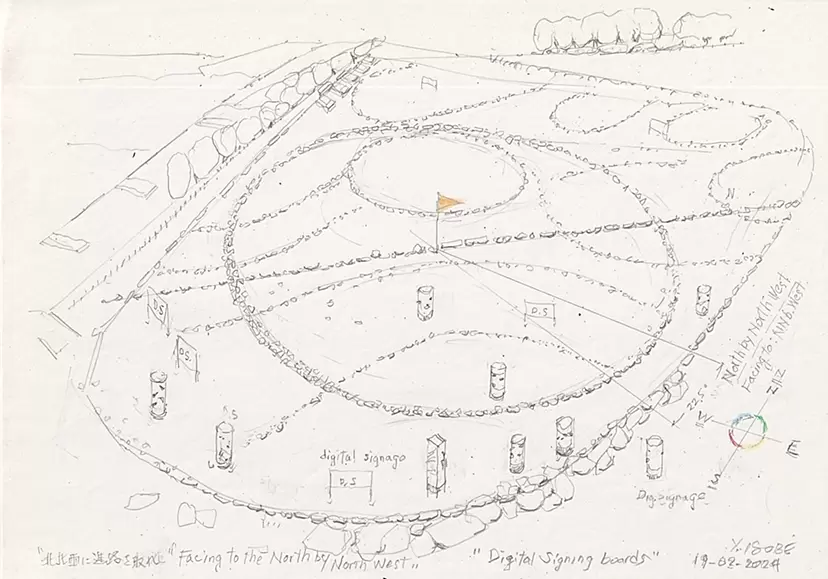 D.S
D.S.
D.S
S
N
digital signage
D.S
Dig. signage
North by North West
Facing to: NN b. West
22.5°
W
E
"北北西に進路を取れ" "Facing to the North by North West"
"Digital Signing boards"
19-02-2024